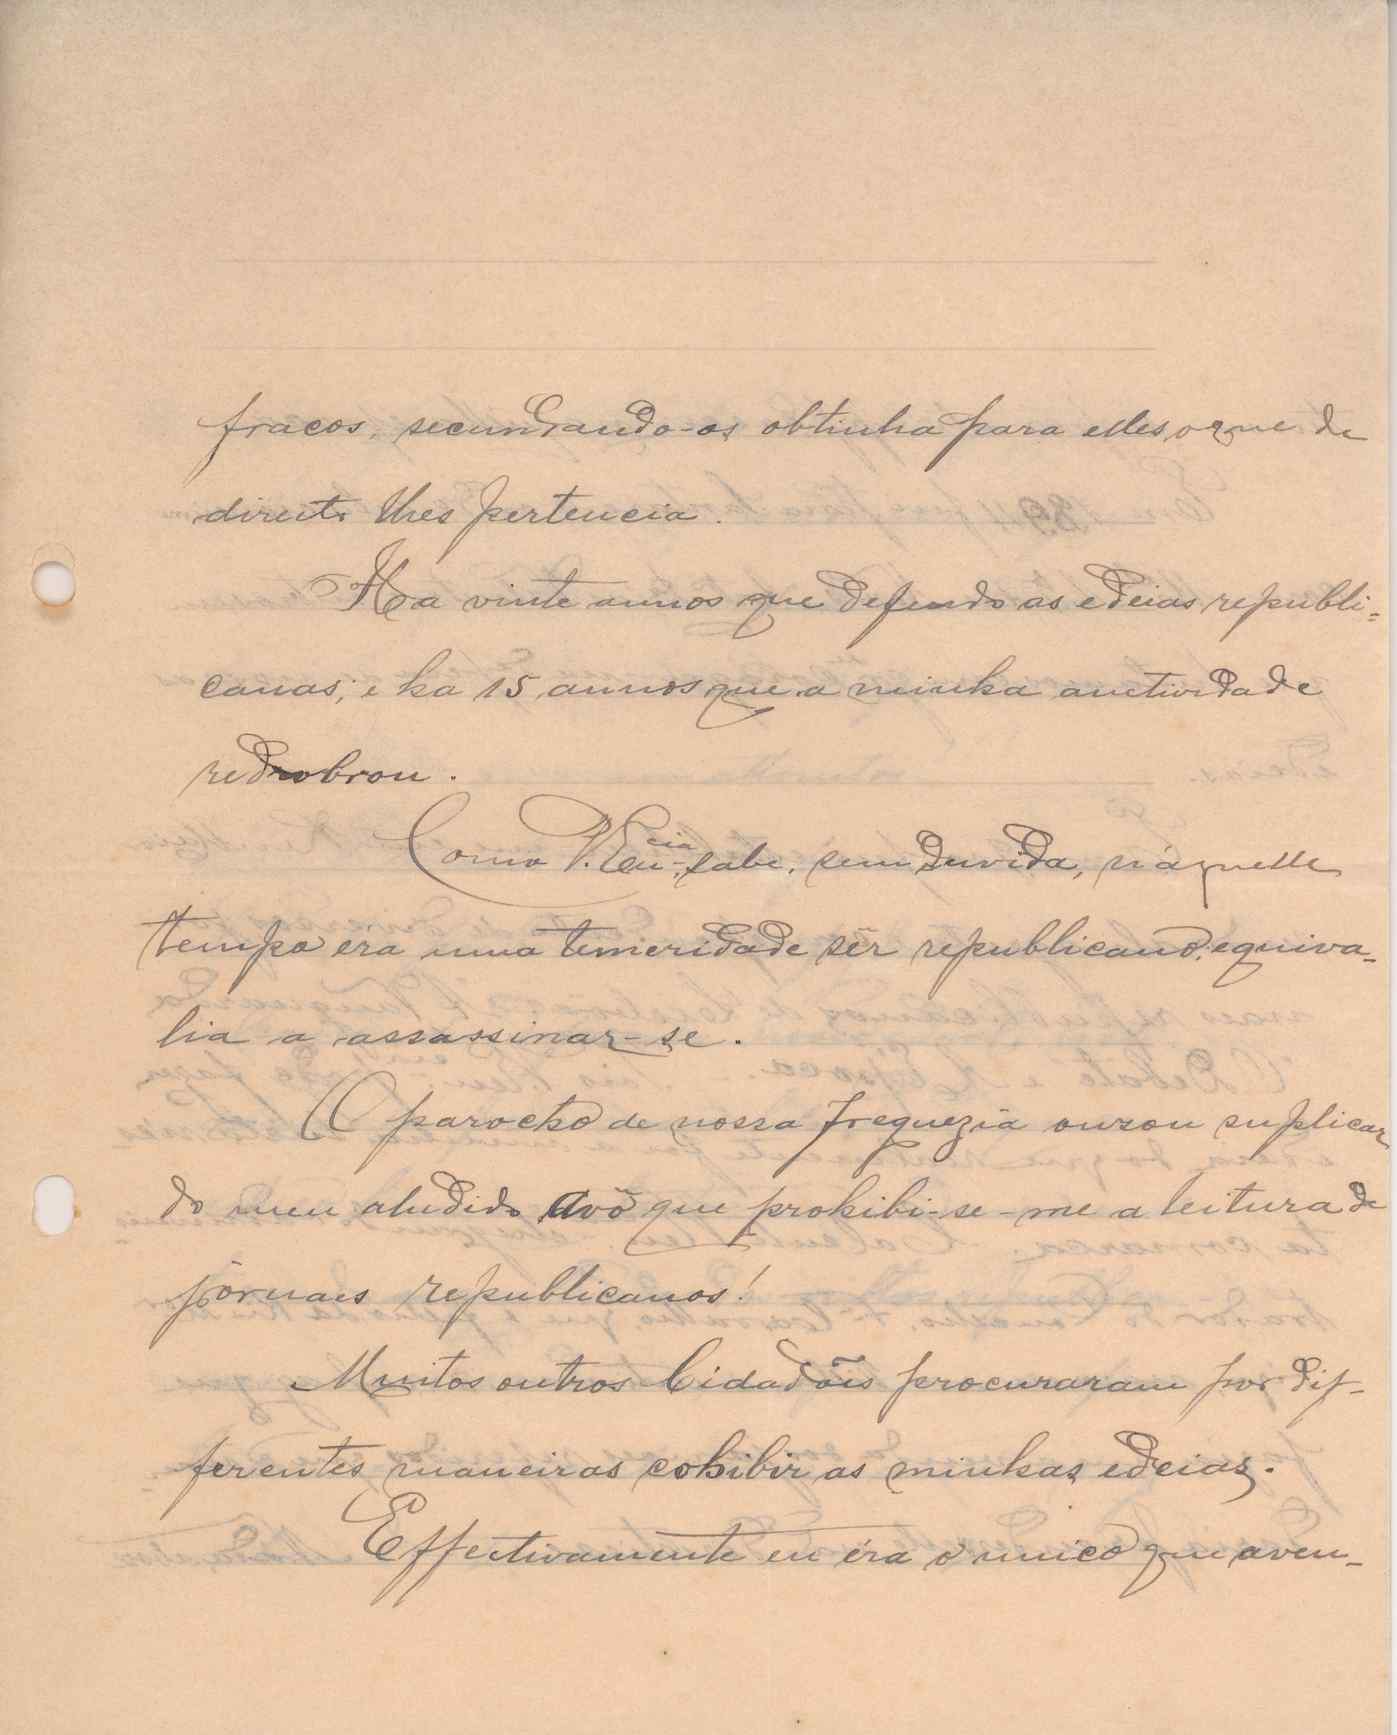 fracos, secundando-os obtinha para elles o que de
direito lhes pertencia.
Ha vinte annos que defendo as edeias republi=
canas; e ha 15 annos que a minha auctividade
redrobrou.
Como V. Exc.cia sabe, sem duvida, n'áquelle
tempo éra uma temeridade sêr republicano; equiva-
lia a assassinar-se.
O parocho de nossa freguezia ousou suplicar
do meu aludido avô que prohibi-se-me a leitura de
jornaes republicanos!
Muitos outros Cidadõis procuraram por dif-
ferentes maneiras cohibir as minhas edeias.
Effectivamente eu éra o unico que aven-